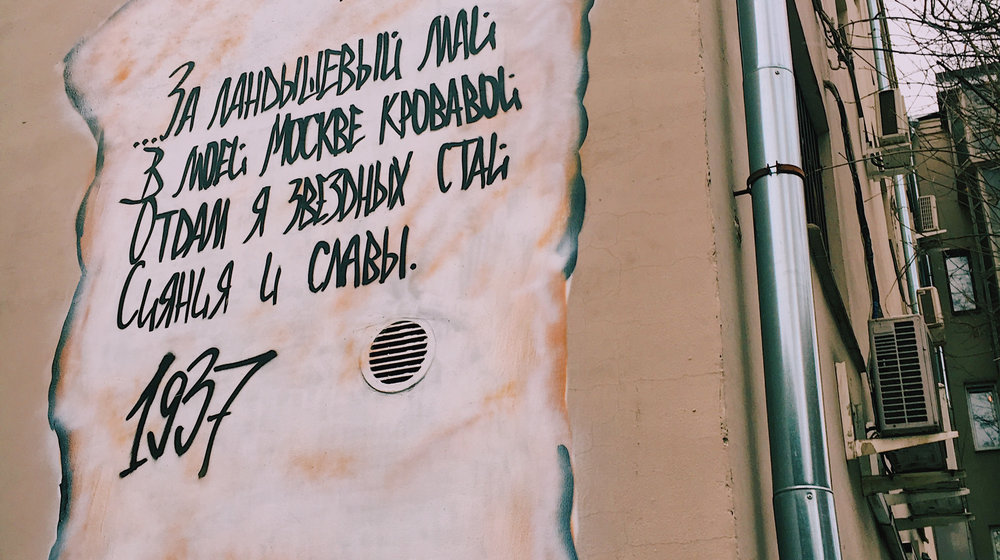 ...За ландышевый май
В моей Москве кровавой
Отдам я звездных стай
Сияния и славы.
1937